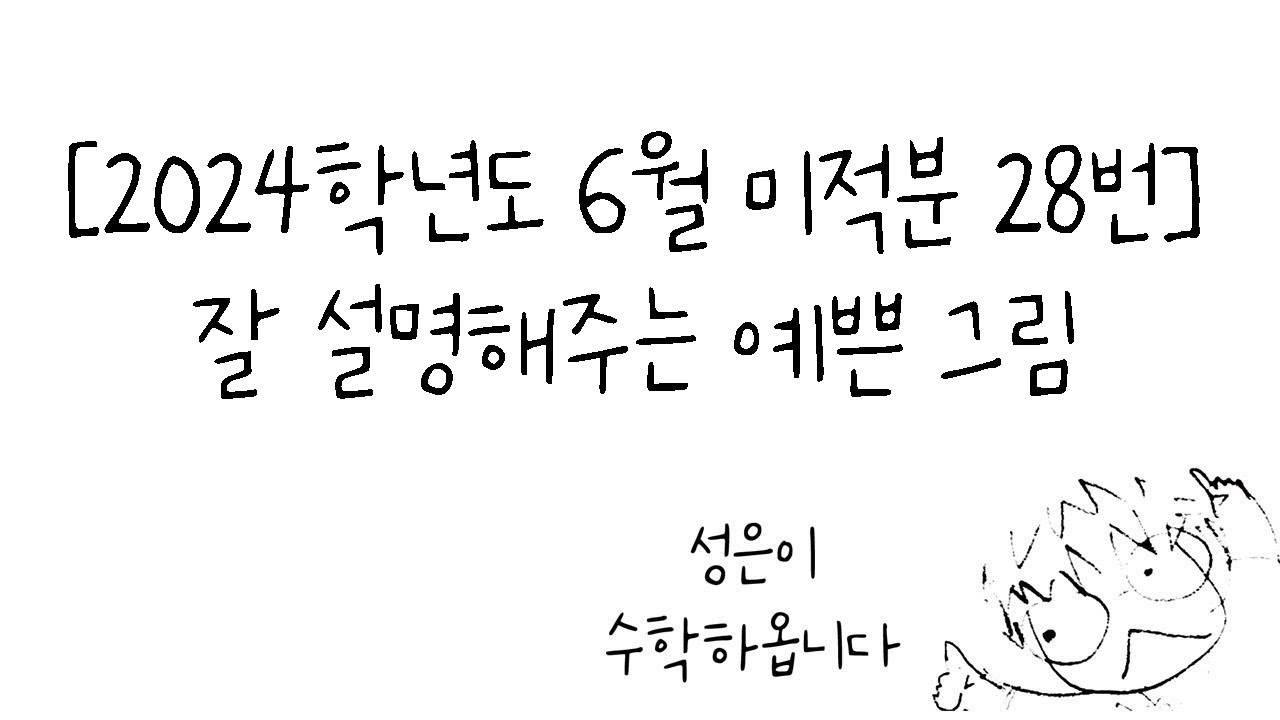 [2024학년도 6월 미적분 28번]
잘 설명해주는 예쁜 그림
성은이
수학하옵니다